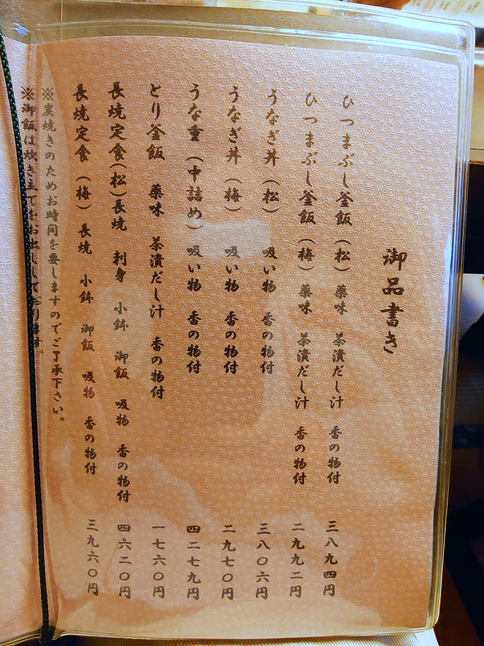 御品書き
ひつまぶし釜飯（松）薬味　茶漬だし汁　香の物付　三八九四円
ひつまぶし釜飯（梅）薬味　茶漬だし汁　香の物付　二九九二円
うなぎ丼（松）　吸い物　香の物付　三八〇六円
うなぎ丼（梅）　吸い物　香の物付　二九七〇円
うな重（中詰め）吸い物　香の物付　四二七九円
とり釜飯　薬味　茶漬だし汁　香の物付　一七六〇円
長焼定食（松）長焼　刺身　小鉢　御飯　吸物　香の物付　四六二〇円
長焼定食（梅）長焼　小鉢　御飯　吸物　香の物付　三九六〇円
※炭焼きのためお時間を要しますのでご了承下さい。
※御飯は炊き立てをお出ししております。